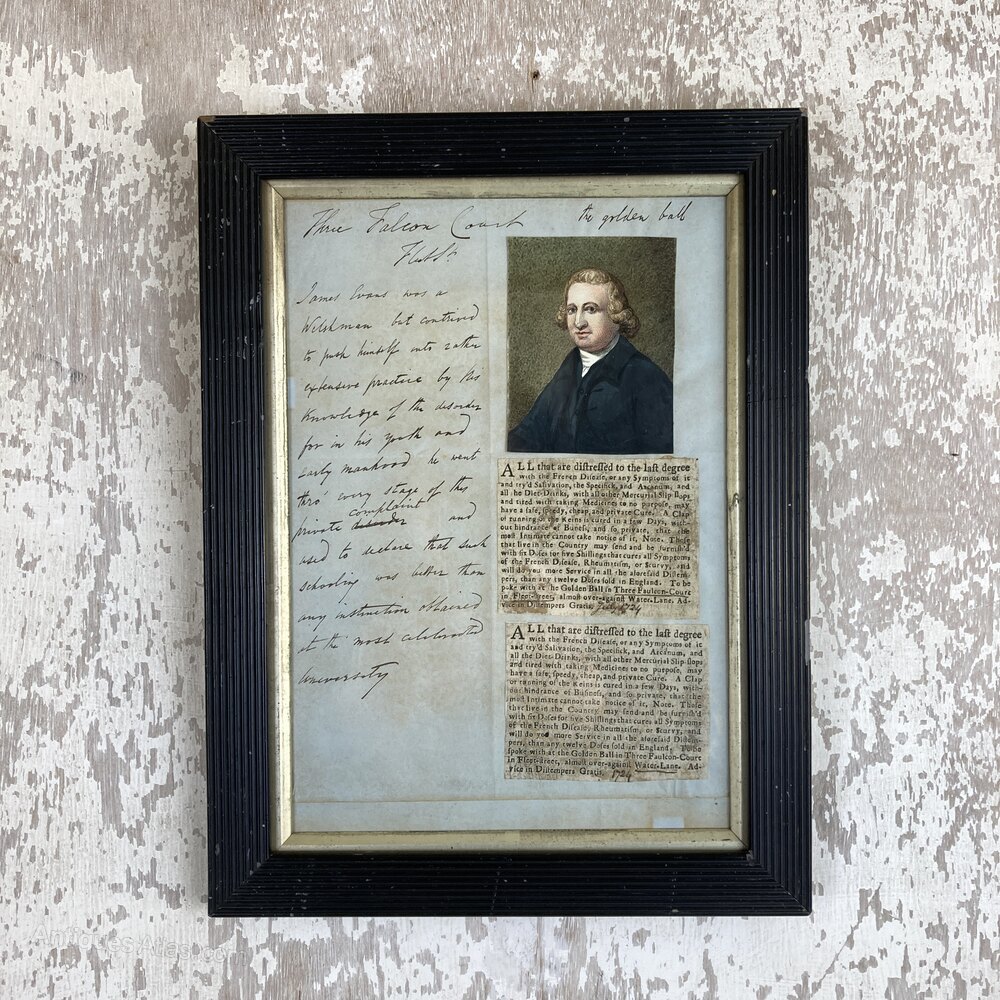 Three Falcon Court
Fleet St
the golden ball
James Evans was a
Welshman but contrived
to push himself into rather
extensive practice by his
knowledge of the disorder
for in his youth and
early manhood he went
thro' every stage of this
private complaint and
used to declare that such
schooling was better than
any instruction obtained
at the most celebrated
university
ALL that are diſtreſſed to the laſt degree
with the French Diſeaſe, or any Symptoms of it
and try'd Salivation, the Specifick, and Arcanum, and
all the Diet-Drinks, with all other Mercurial Slip ſlops
and tired with taking Medicines to no purpoſe, may
have a ſafe, ſpeedy, cheap, and private Cure. A Clap
or running of the Reins is cured in a few Days, with-
out hindrance of Buſineſs, and ſo private, that the
moſt Intimate cannot take notice of it, Note. Thoſe
that live in the Country may ſend and be furniſh'd
with ſix Doſes for five Shillings that cures all Symptoms
of the French Diſeaſe, Rheumatiſm, or Scurvy, and
will do you more Service in all the aforeſaid Diſtem-
pers, than any twelve Doſes ſold in England. To be
ſpoke with at the Golden Ball in Three Faulcon-Court
in Fleet-ſtreet, almoſt over-againſt Water-Lane. Ad-
vice in Diſtempers Gratis. July 1724
ALL that are diſtreſſed to the laſt degree
with the French Diſeaſe, or any Symptoms of it
and try'd Salivation, the Specifick, and Arcanum, and
all the Diet-Drinks, with all other Mercurial Slip-ſlops
and tired with taking Medicines to no purpoſe, may
have a ſafe, ſpeedy, cheap, and private Cure. A Clap
or running of the Reins is cured in a few Days, with-
out hindrance of Buſineſs, and ſo private, that the
moſt Intimate cannot take notice of it, Note. Thoſe
that live in the Country may ſend and be furniſh'd
with ſix Doſes for five Shillings that cures all Symptoms
of the French Diſeaſe, Rheumatiſm, or Scurvy, and
will do you more Service in all the aforeſaid Diſtem-
pers, than any twelve Doſes ſold in England. To be
ſpoke with at the Golden Ball in Three Faulcon-Court
in Fleet-ſtreet, almoſt over-againſt Water-Lane. Ad-
vice in Diſtempers Gratis. 1724
AntiquesAtlas.com